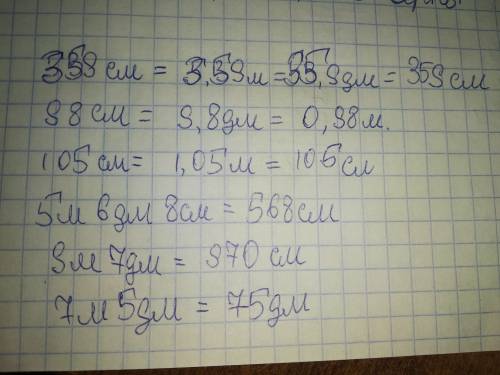 359 см = 3,59 м = 35,9 дм = 359 см
98 см = 9,8 дм = 0,98 м.
105 см = 1,05 м = 105 см
5 м 6 дм 8 см = 568 см
9 м 7 дм = 970 см
7 м 5 дм = 75 дм